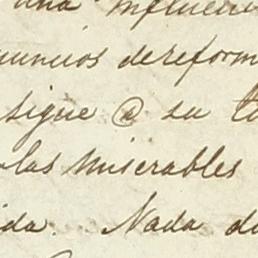 una influen
nuncios de reform
sigue @ su t
las miserables
ida. Nada d